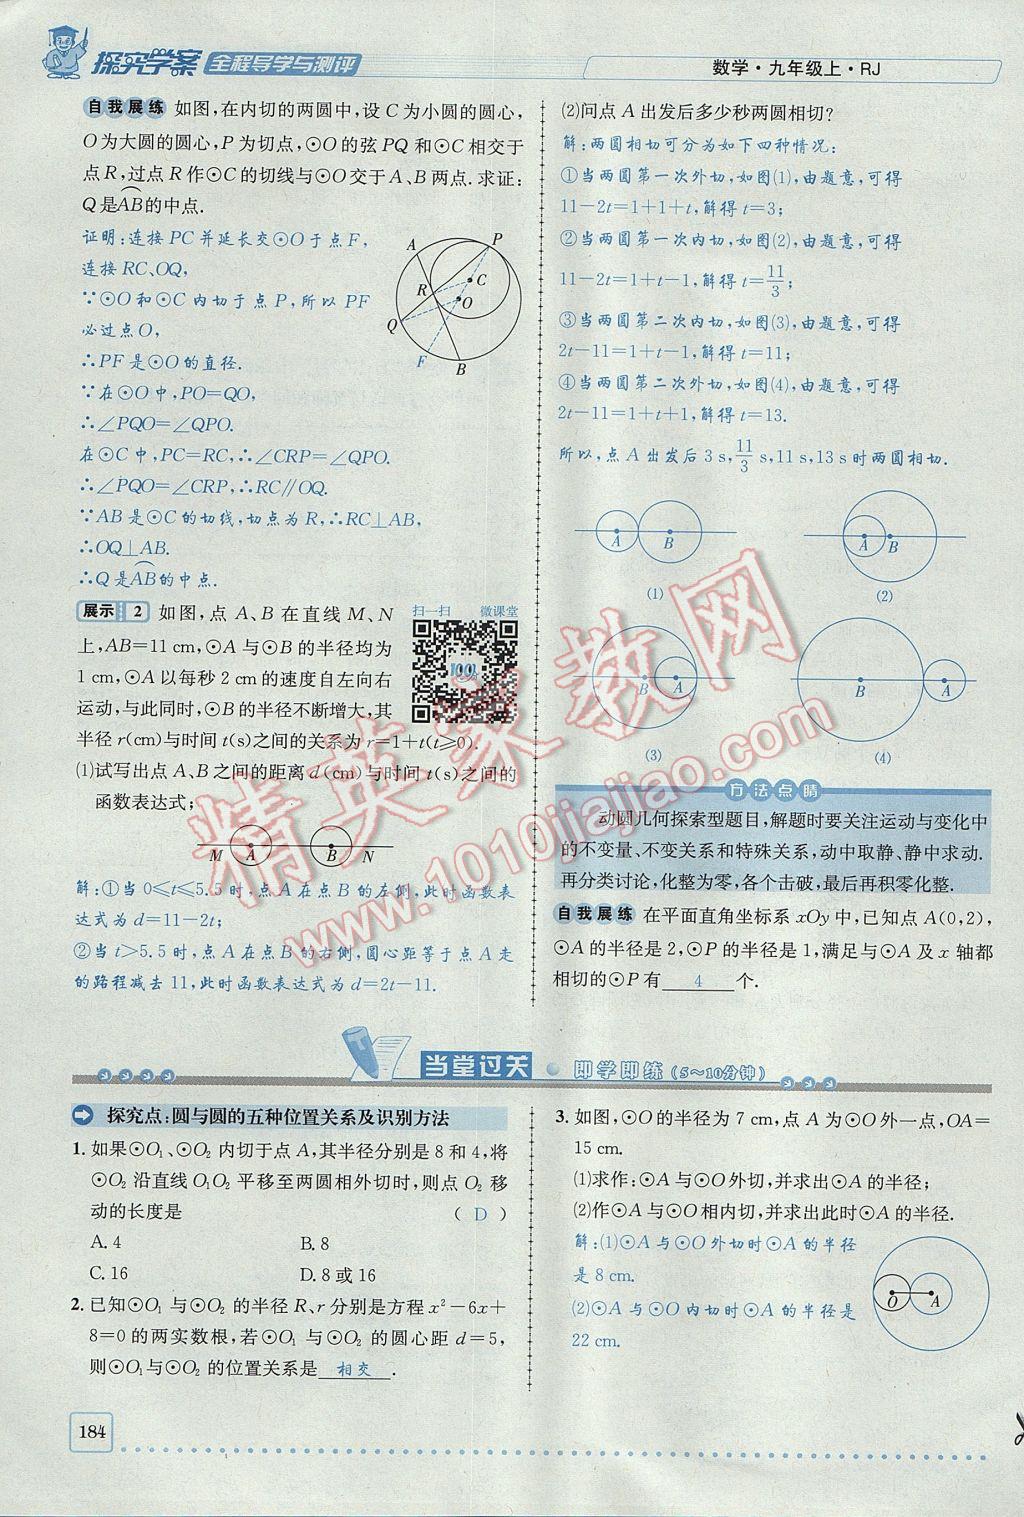 探究学案 全程导学与测评
数学·九年级上·RJ
自我展练 如图,在内切的两圆中,设C为小圆的圆心,
O为大圆的圆心,P为切点,⊙O的弦PQ和⊙C相交于
点R,过点R作⊙C的切线与⊙O交于A、B两点.求证:
Q是AB的中点.
证明:连接PC并延长交⊙O于点F,
连接RC、OQ,
∵⊙O和⊙C内切于点P,所以PF
必过点O,
∴PF是⊙O的直径.
∵在⊙O中,PO=QO,
∴∠PQO=∠QPO.
在⊙C中,PC=RC,∴∠CRP=∠QPO.
∴∠PQO=∠CRP,∴RC∥OQ.
∵AB是⊙C的切线,切点为R,∴RC⊥AB,
∴OQ⊥AB.
∴Q是AB的中点.
A
P
C
R
O
Q
F
B
展示 2 如图,点A、B在直线M、N
上,AB=11 cm,⊙A与⊙B的半径均为
1 cm,⊙A以每秒2 cm的速度自左向右
运动,与此同时,⊙B的半径不断增大,其
半径r(cm)与时间t(s)之间的关系为r=1+t(t≥0).
扫一扫 微课堂
(1)试写出点A、B之间的距离d(cm)与时间t(s)之间的
函数表达式;
M A B N
解:①当0≤t≤5.5时,点A在点B的左侧,此时函数表
达式为d=11-2t;
②当t>5.5时,点A在点B的右侧,圆心距等于点A走
的路程减去11,此时函数表达式为d=2t-11.
(2)问点A出发后多少秒两圆相切?
解:两圆相切可分为如下四种情况:
①当两圆第一次外切,如图(1),由题意,可得
11-2t=1+1+t,解得t=3;
②当两圆第一次内切,如图(2),由题意,可得
11-2t=1+t-1,解得t=11/3;
③当两圆第二次内切,如图(3),由题意,可得
2t-11=1+t-1,解得t=11;
④当两圆第二次外切,如图(4),由题意,可得
2t-11=1+t+1,解得t=13.
所以,点A出发后3 s,11/3 s,11 s,13 s时两圆相切.
A B
A B
(1)
(2)
B A
B A
(3)
(4)
方法点睛
动圆几何探索型题目,解题时要关注运动与变化中
的不变量、不变关系和特殊关系,动中取静、静中求动.
再分类讨论,化整为零,各个击破,最后再积零化整.
自我展练 在平面直角坐标系xOy中,已知点A(0,2),
⊙A的半径是2,⊙P的半径是1,满足与⊙A及x轴都
相切的⊙P有 4 个.
精英家教网
www.1010jiajiao.com
当堂过关 ● 即学即练(5~10分钟)
探究点:圆与圆的五种位置关系及识别方法
1. 如果⊙O₁、⊙O₂内切于点A,其半径分别是8和4,将
⊙O₂沿直线O₁O₂平移至两圆相外切时,则点O₂移
动的长度是 ( D )
A. 4 B. 8
C. 16 D. 8或16
2. 已知⊙O₁与⊙O₂的半径R、r分别是方程x²-6x+
8=0的两实数根,若⊙O₁与⊙O₂的圆心距d=5,
则⊙O₁与⊙O₂的位置关系是 相交 .
3. 如图,⊙O的半径为7 cm,点A为⊙O外一点,OA=
15 cm.
(1)求作:⊙A与⊙O外切,并求出⊙A的半径;
(2)作⊙A与⊙O相内切,并求出此时⊙A的半径.
解:(1)⊙A与⊙O外切时⊙A的半径
是8 cm.
(2)⊙A与⊙O内切时⊙A的半径是
22 cm.
O A
184